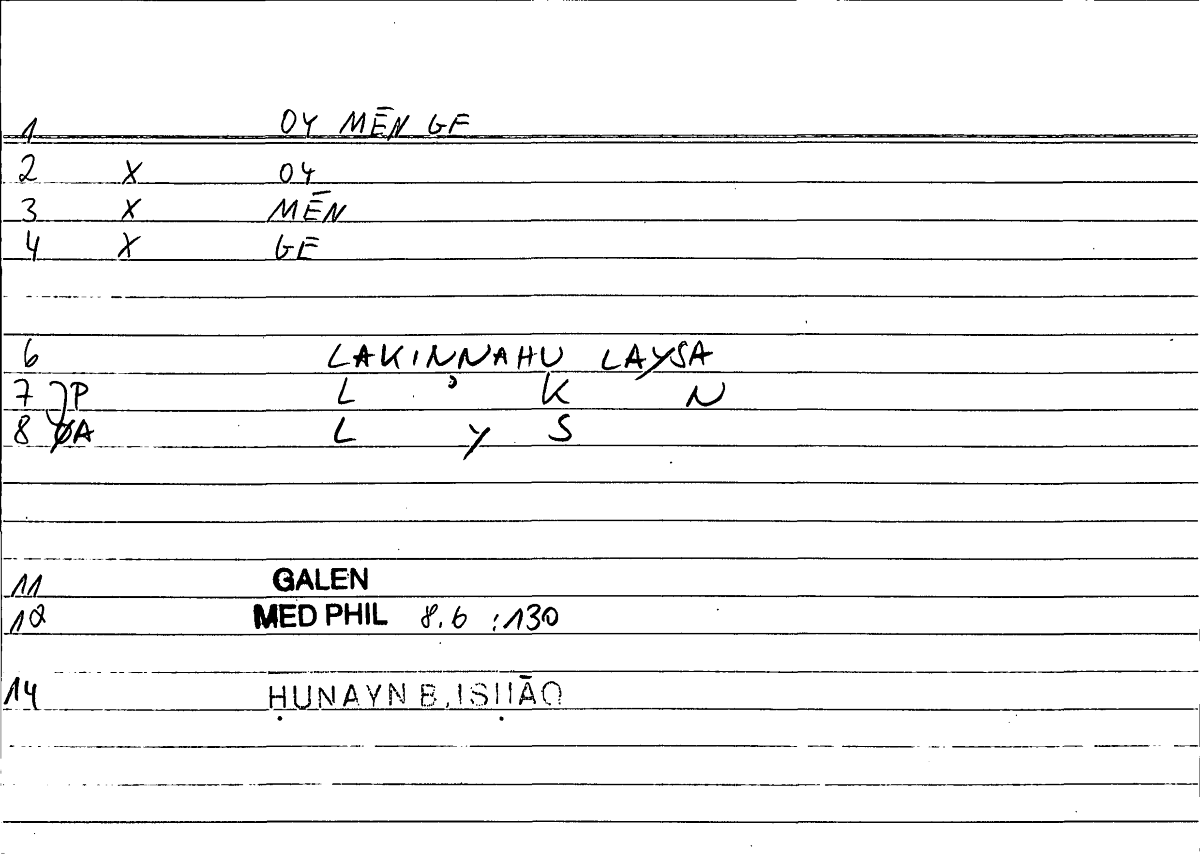 1 OY MĒN GE
2 X OY
3 X MĒN
4 X GE
6 LAKINNAHU LAYSA
7 P L ʾ K N
8 ØA L Y S
11 GALEN
12 MED PHIL 8.6 :130
14 ḤUNAYN B. ISḤĀQ